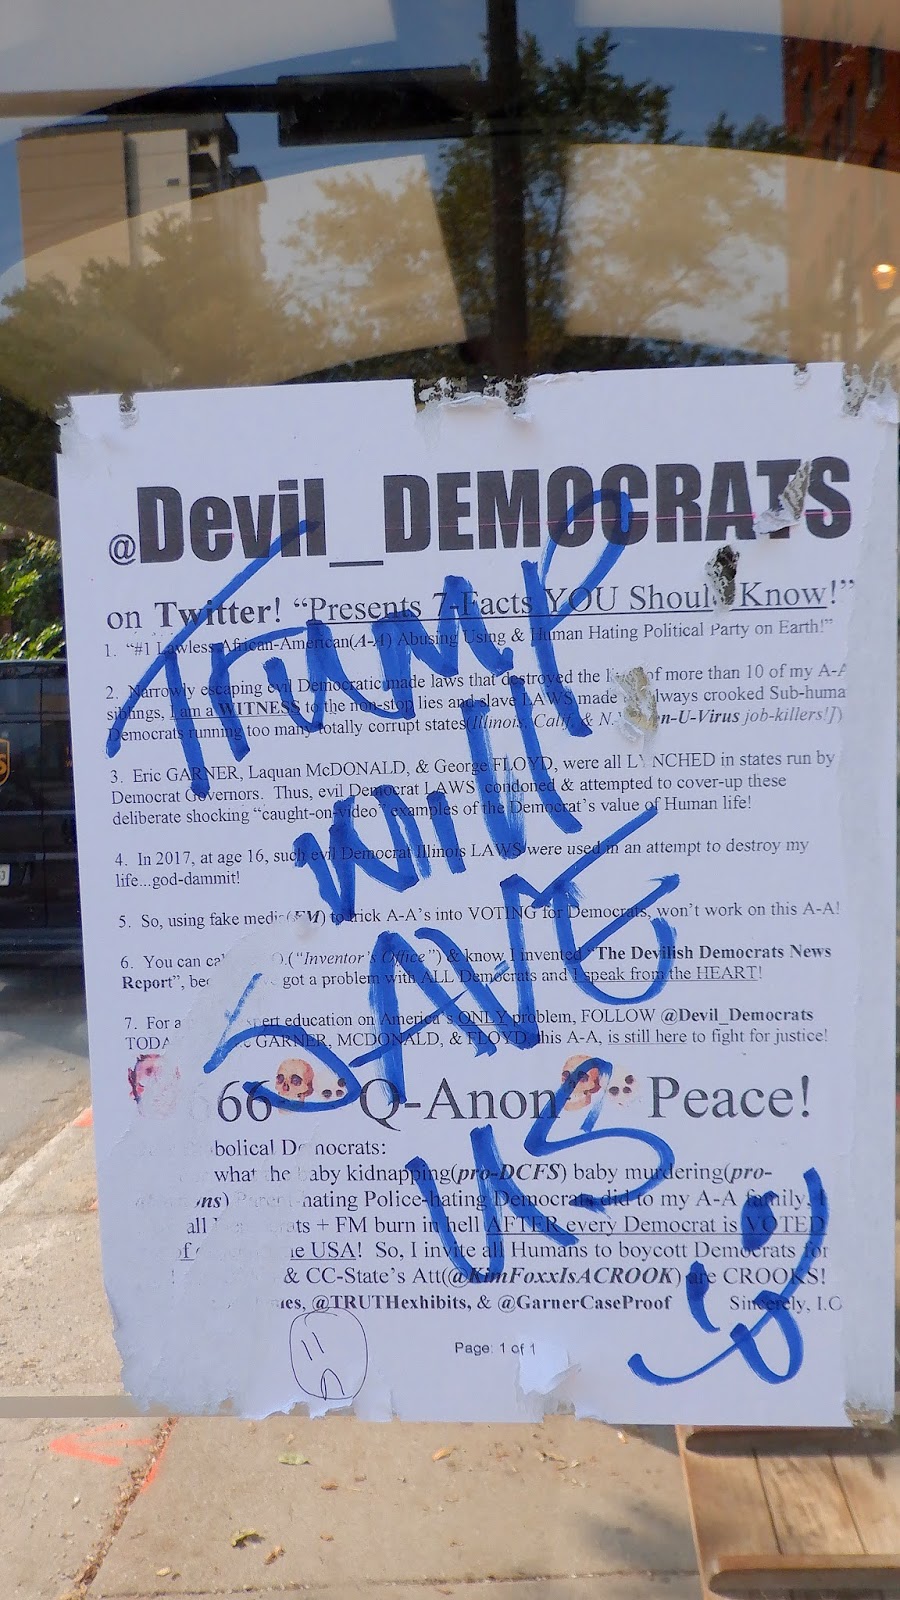 @Devil_DEMOCRATS
on Twitter! “Presents 7-Facts YOU Should Know!”
1. “#1 Lawless African-American(A-A) Abusing Using & Human Hating Political Party on Earth!”
2. Narrowly escaping evil Democratic made laws that destroyed the of more than 10 of my A-A
siblings, I am a WITNESS to the non-stop lies and slave LAWS made always crooked Sub-huma
Democrats running too many totally corrupt states(Illinois, Calif, & N. n-U-Virus job-killers!])
3. Eric GARNER, Laquan McDONALD, & George FLOYD, were all LYNCHED in states run by
Democrat Governors. Thus, evil Democrat LAWS condoned & attempted to cover-up these
deliberate shocking “caught-on-video” examples of the Democrat's value of Human life!
4. In 2017, at age 16, such evil Democrat Illinois LAWS were used in an attempt to destroy my
life...god-dammit!
5. So, using fake media(FM) to trick A-A's into VOTING for Democrats, won't work on this A-A!
6. You can O.(“Inventor's Office”) & know I invented “The Devilish Democrats News
Report”, got a problem with ALL Democrats and I speak from the HEART!
7. For a education on America's ONLY problem, FOLLOW @Devil_Democrats
TODA GARNER, MCDONALD, & FLOYD, this A-A, is still here to fight for justice!
666 Q-Anon Peace!
bolical Democrats:
what the baby kidnapping(pro-DCFS) baby murdering(pro-
ns) Parent-hating Police-hating Democrats did to my A-A family, I
all + FM burn in hell AFTER every Democrat is VOTED
of USA! So, I invite all Humans to boycott Democrats for
& CC-State's Att(@KimFoxxIsACROOK) are CROOKS!
@TRUTHexhibits, & @GarnerCaseProof Sincerely, I.O
Page: 1 of 1
TRUMP
Will
SAVE
US